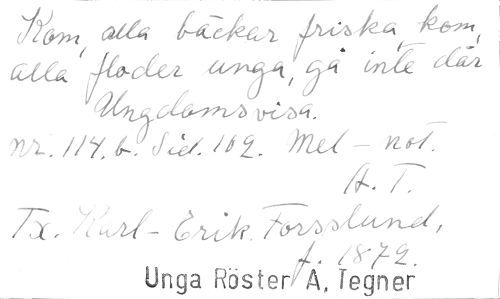 Kom, alla bäckar friska, kom,
alla floder unga, gå inte där
Ungdomsvisa.
nr. 114. b. Sid. 102. Mel - not.
A. T.
Tx. Karl-Erik Forsslund,
f. 1872.
Unga Röster A, Tegner